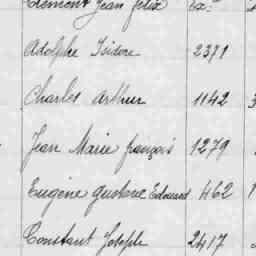 Clémont Jean félix
Adolphe Isidore 2371
Charles Arthur 1142
Jean Marie françois 1279
Eugène Gustave Edouard 462
Constant Joseph 2417